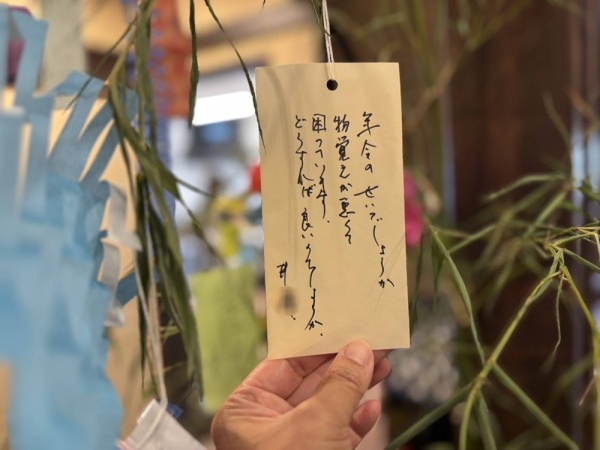 年令のせいでしょうか
物覚えが悪くて
困っています。
どうすれば良いでしょうか。